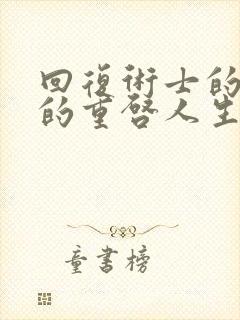 回復術士的
的重啓人生
童書榜